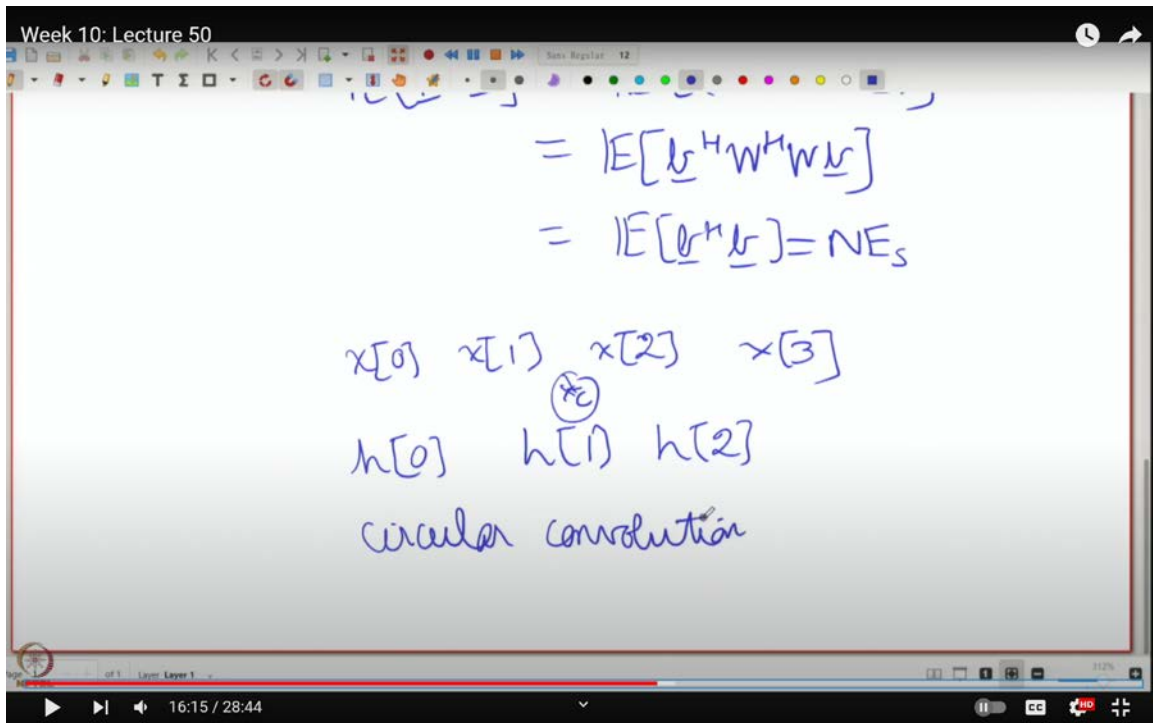 Week 10: Lecture 50
Sans Regular 12
= 𝔼[b^H W^H W b]
= 𝔼[b^H b] = NE_s
x[0] x[1] x[2] x[3]
*c
h[0] h[1] h[2]
circular convolution
of 1 Layer Layer 1
312%
16:15 / 28:44
CC HD